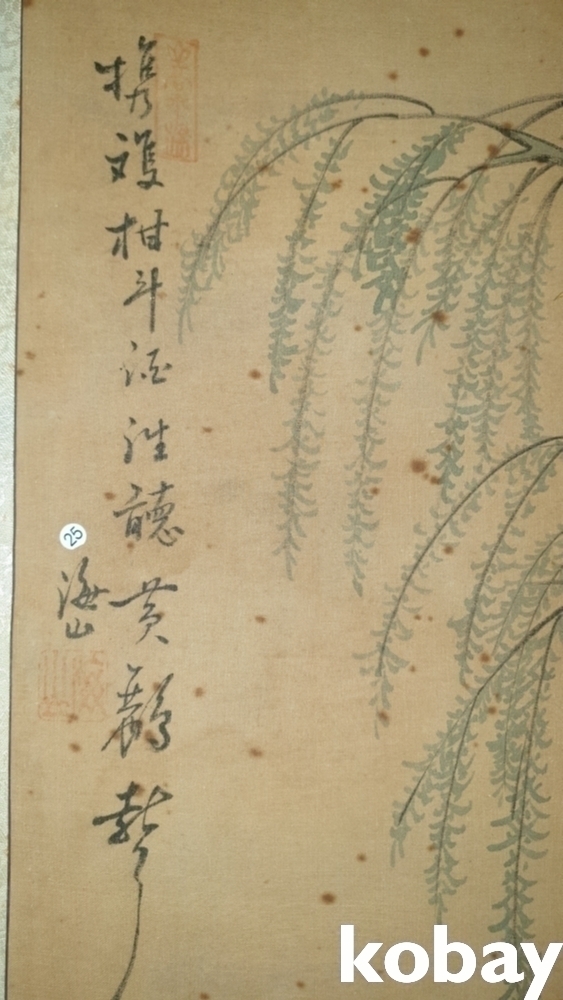 携雙柑斗酒往聽黃鸝聲
海山
25
kobay